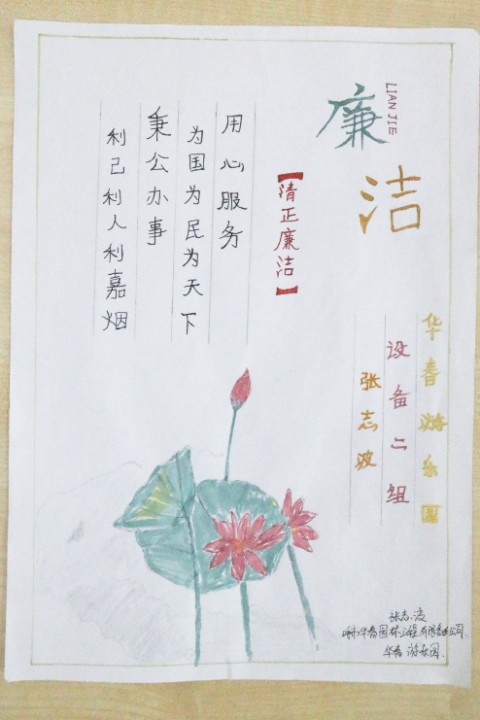 廉洁
LIAN JIE
【清正廉洁】
用心服务
为国为民为天下
秉公办事
利己利人利嘉烟
华春游乐园
设备二组
张志波
张志波
华春园林工程有限责任公司
华春游乐园